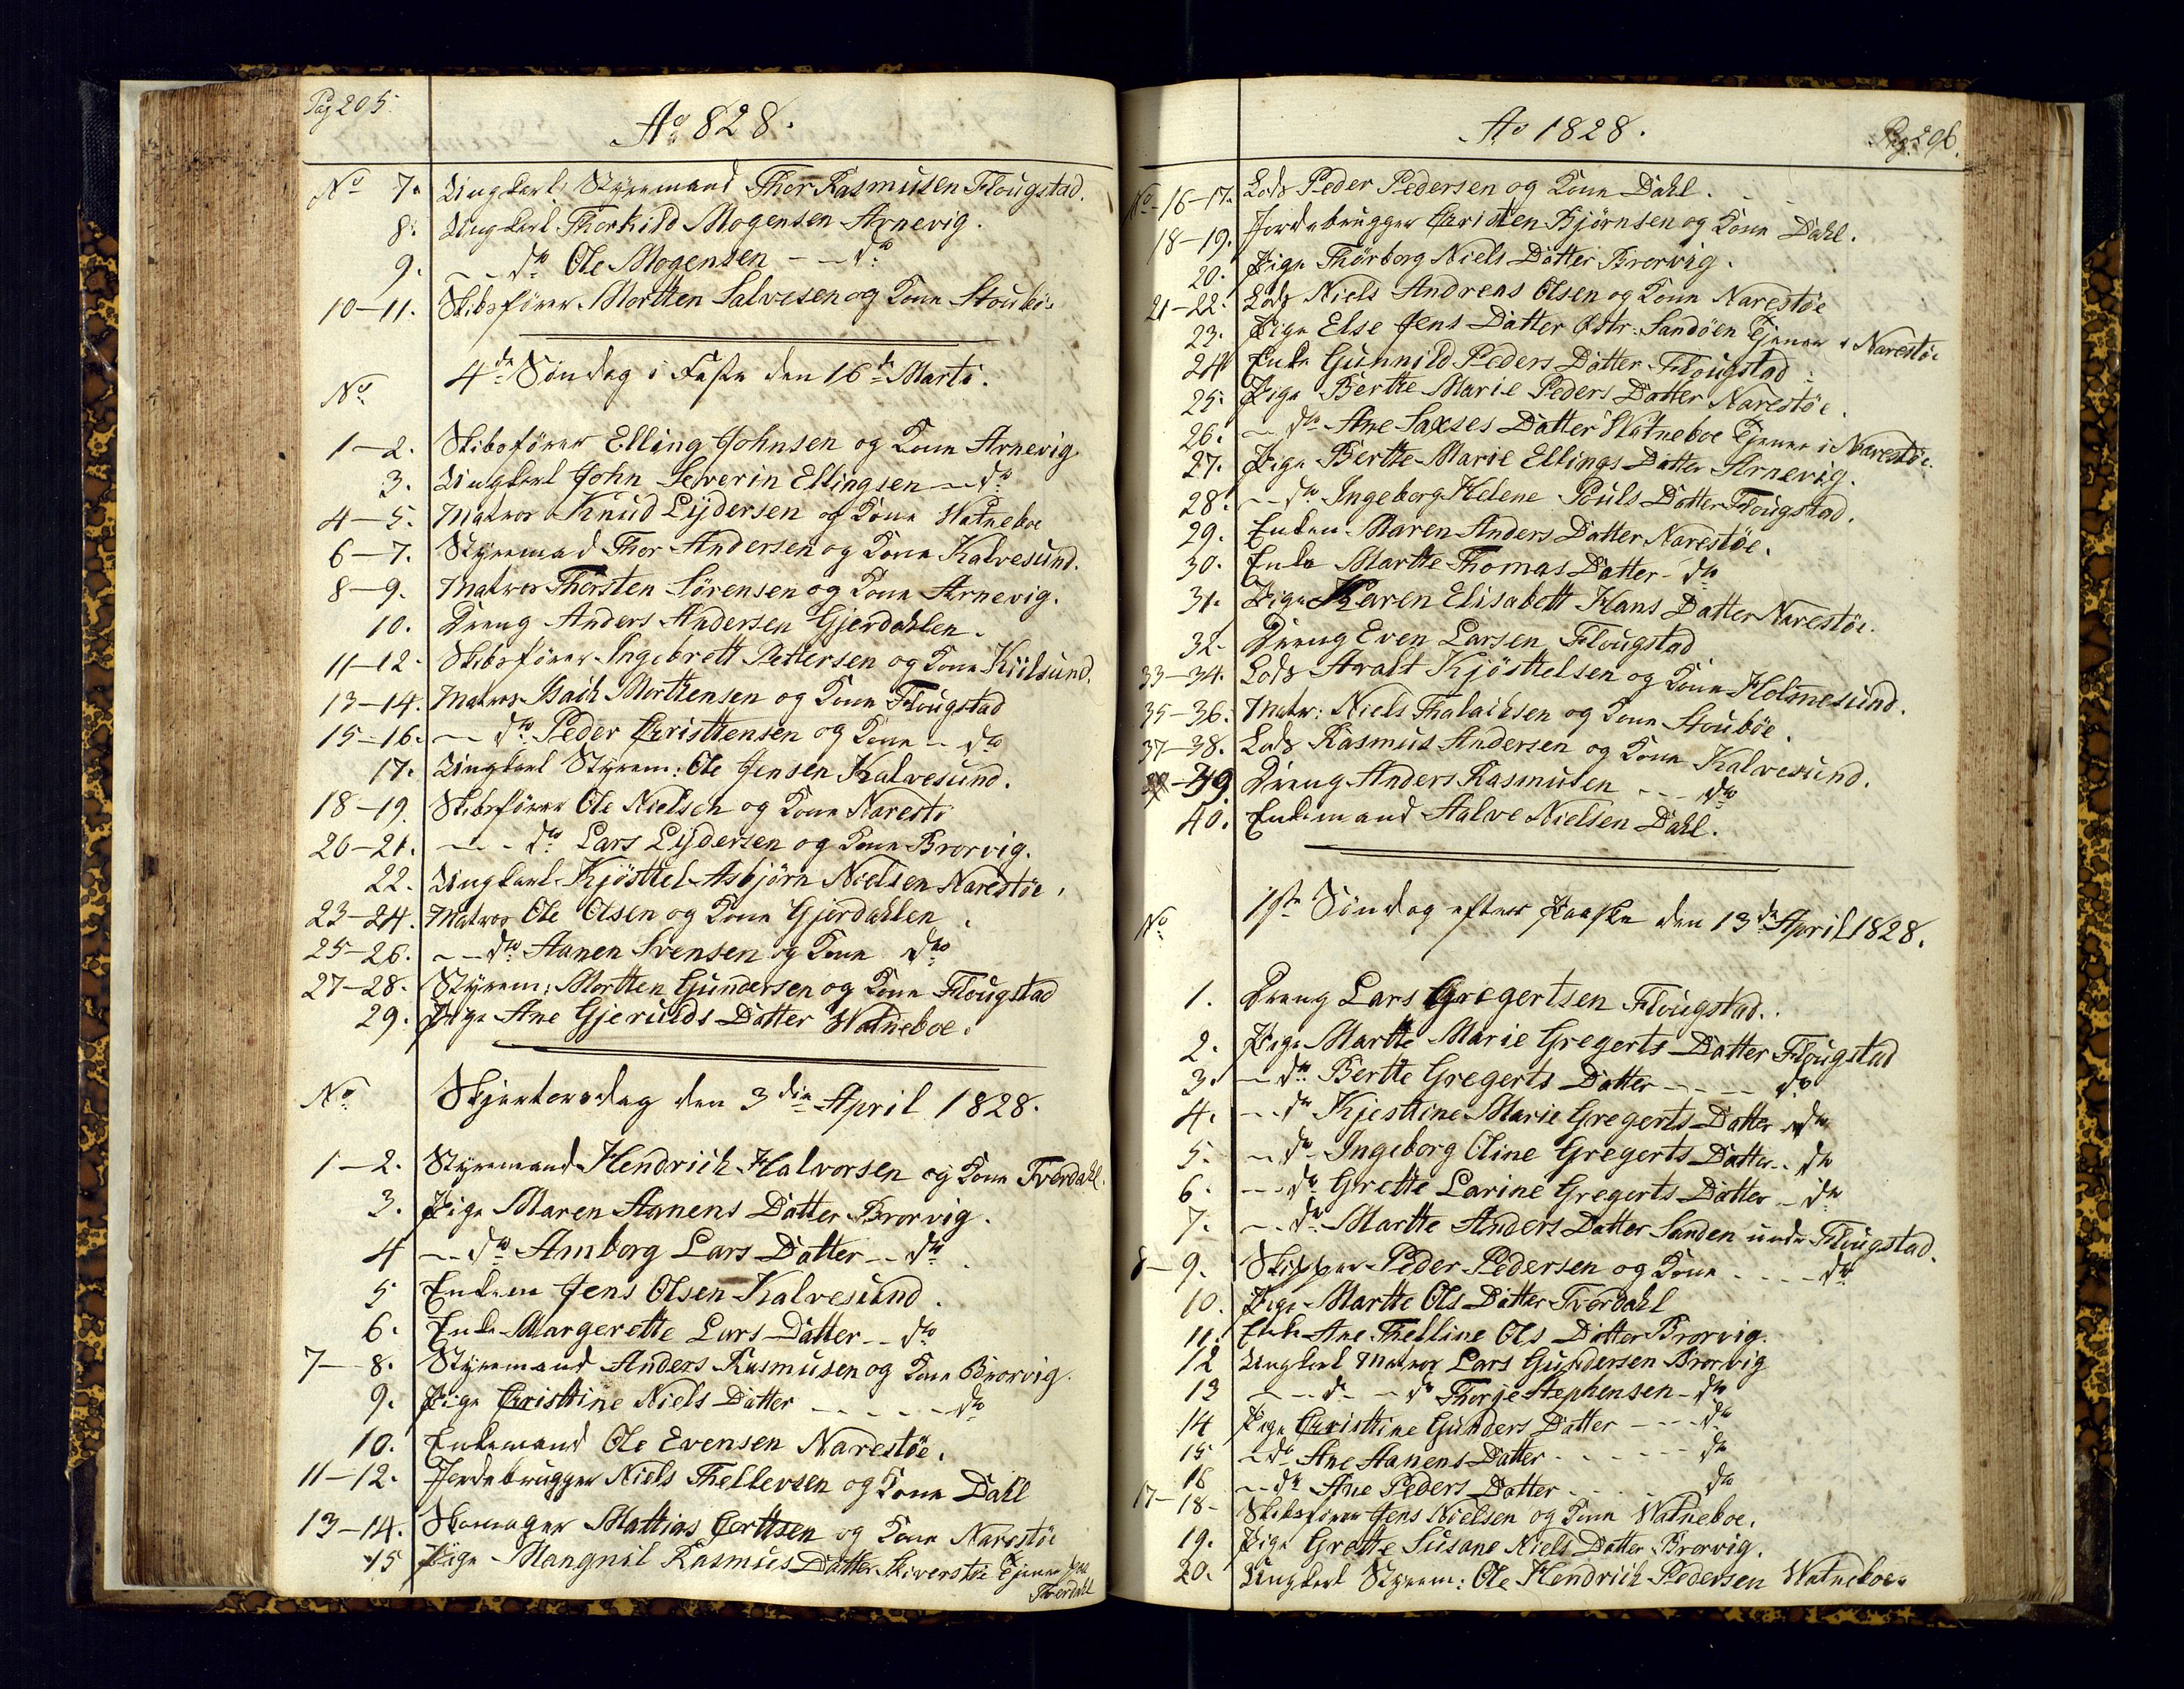 Pag 205.
Ao 828.
No 7. Ungkarl Styremand Thor Rasmusen Flougstad.
8. Ungkarl Thorkild Mogensen Arnevig.
9. -- do Ole Mogensen -- do
10-11. Skibsförer Mortten Salvesen og Kone Stoubö.
4de Söndag i Faste den 16de Marti.
No
1-2. Skibsförer Elling Johnsen og Kone Arnevig
3. Ungkarl John Severin Ellingsen -- do
4-5. Matros Knud Lydersen og Kone Watneboe
6-7. Styremad Thor Andersen og Kone Kalvesund.
8-9. Matros Thorsten Sörensen og Kone Arnevig.
10. Dreng Anders Andersen Gjerdahlen.
11-12. Skibsförer Ingebrett Pettersen og Kone Kiilsund.
13-14. Matros Isach Morttensen og Kone Flougstad
15-16. -- do Peder Christtensen og Kone -- do
17. Ungkarl Styrem: Ole Jensen Kalvesund.
18-19. Skibsförer Ole Nielsen og Kone Narestö
20-21. -- - do Lars Lydersen og Kone Brorvig.
22. Ungkarl Kjösttel Asbjörn Nielsen Narestöe.
23-24. Matros Ole Olsen og Kone Gjerdahlen.
25-26. -- do Aanen Svensen og Kone do
27-28. Styrem: Mortten Gundersen og Kone Flougstad
29. Pige Ane Gjerulds Datter Watneboe.
No Skjertorsdag den 3die April 1828.
1-2. Styremand Hendrich Halvorsen og Kone Tverdahl.
3. Pige Maren Aanens Datter Brorvig.
4 -- do Amborg Lars Datter -- do.
5 Enkem Jens Olsen Kalvesund.
6. Enke Margerette Lars Datter -- do
7-8. Styremand Anders Rasmusen og Kone Brorvig.
9. Pige Christtine Niels Datter - - - - - do
10. Enkemand Ole Evensen Narestöe.
11-12. Jordebrugger Niels Thellevsen og Kone Dahl
13-14. Skomager Mattias Gorttsen og Kone Narestöe
15 Pige Mangnil Rasmus Datter Tjener
Tverdahl
Ao 1828.
Pag: 206.
No 16-17. Lods Peder Pedersen og Kone Dahl.
18-19. Jordebrugger Christen Bjørnsen og Kone Dahl.
20. Pige Thörborg Niels Datter Brorvig.
21-22. Lods Niels Andreas Olsen og Kone Narestöe
23. Pige Else Jens Datter Ostr: Sandöen Tjener i Narestöe
24 Enke Gunnild Peders Datter Flougstad
25. Pige Bertte Marie Peders Datter Narestöe.
26. -- do Ane Saxses Datter Watneboe Tjener i Narestöe.
27. Pige Bertte Marie Ellings Datter Arnevig.
28. -- do Ingeborg Helene Pouls Datter Flougstad.
29. Enken Maren Anders Datter Narestöe.
30. Enke Martte Thomas Datter - do
31. Pige Karen Elisabett Hans Datter Narestöe.
32. Dreng Even Larsen Flougstad
33-34. Lods Aralt Kjösttelsen og Kone Holmesund.
35-36. Matr: Niels Thalachsen og Kone Stouböe.
37-38. Lods Rasmus Andersen og Kone Kalvesund.
39. Dreng Anders Rasmusen - - - do
40. Enkemand Aalve Nielsen Dahl.
No 1ste Söndag efter Paaske den 13de April 1828.
1. Dreng Lars Gregertsen Flougstad.
2. Pige Martte Marie Gregerts Datter Flougstad
3. -- do Bertte Gregerts Datter - - - - do
4. -- do Kjesttine Marie Gregerts Datter - do
5. -- do Ingeborg Oline Gregerts Datter - do
6. -- do Grette Larine Gregerts Datter - do
7. -- do Martte Anders Datter Sanden under Flougstad.
8-9. Skipper Peder Pedersen og Kone - - - - do
10. Pige Martte Ols Datter Tverdahl
11. Enke Ane Thelline Ols Datter Brorvig.
12 Ungkarl Matros Lars Gundersen Brorvig
13 - - - do - - do Thorje Stephensen - do
14 Pige Christtine Gunders Datter - - - do
15 - do Ane Aanens Datter - - - - - - do
16 -- do Ane Peders Datter - - - - do
17-18. Skibsförer Jens Nielsen og Kone Watneboe.
19. Pige Grette Susane Niels Datter Brorvig.
20. Ungkarl Styrem: Ole Hendrich Pedersen Watneboe.